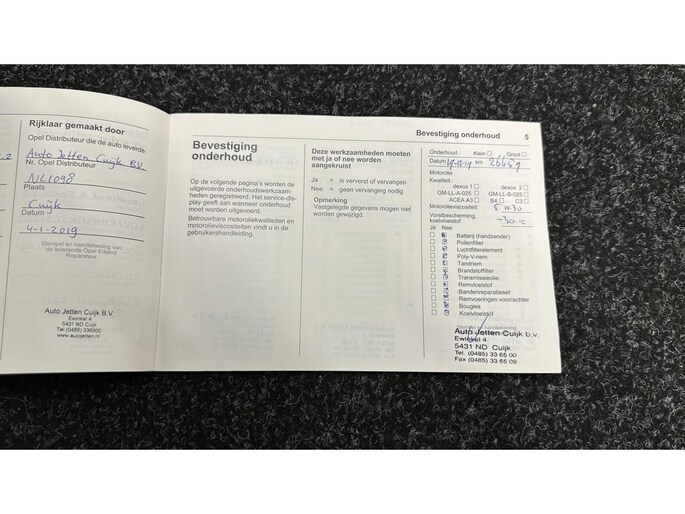 Rijklaar gemaakt door
Opel Distributeur die de auto leverde:
Auto Jetten Cuijk B.V.
Nr. Opel Distributeur
NL1098
Plaats
Cuijk
Datum
4-1-2019
Stempel en handtekening van
de leverende Opel Erkend
Reparateur
Auto Jetten Cuijk B.V.
Ewinkel 4
5431 ND Cuijk
Tel (0485) 336500
www.autojetten.nl
Bevestiging
onderhoud
Op de volgende pagina's worden de
uitgevoerde onderhoudswerkzaam-
heden geregistreerd. Het service-dis-
play geeft aan wanneer onderhoud
moet worden uitgevoerd.
Betrouwbare motoroliekwaliteiten en
motorolieviscositeiten vindt u in de
gebruikershandleiding.
Deze werkzaamheden moeten
met ja of nee worden
aangekruist
Ja = is ververst of vervangen
Nee = geen vervanging nodig
Opmerking
Vastgelegde gegevens mogen niet
worden gewijzigd.
Bevestiging onderhoud 5
Onderhoud: Klein Groot
Datum km 26669
Motorolie
Kwaliteit:
dexos 1 dexos 2
GM-LL-A-025 GM-LL-B-025
ACEA A3 B4 C3
Motorolieviscositeit: 5 W-30
Vorstbescherming,
koelvloeistof -30 °C
Ja Nee
Batterij (handzender)
Pollenfilter
Luchtfilterelement
Poly-V-riem
Tandriem
Brandstoffilter
Transmissieolie
Remvloeistof
Bandenreparatieset
Remvoeringen voor/achter
Bougies
Koelvloeistof
Stempel en handtekening
Auto Jetten Cuijk b.v.
Ewinkel 4
5431 ND Cuijk
Tel. (0485) 33 65 00
Fax (0485) 33 65 09